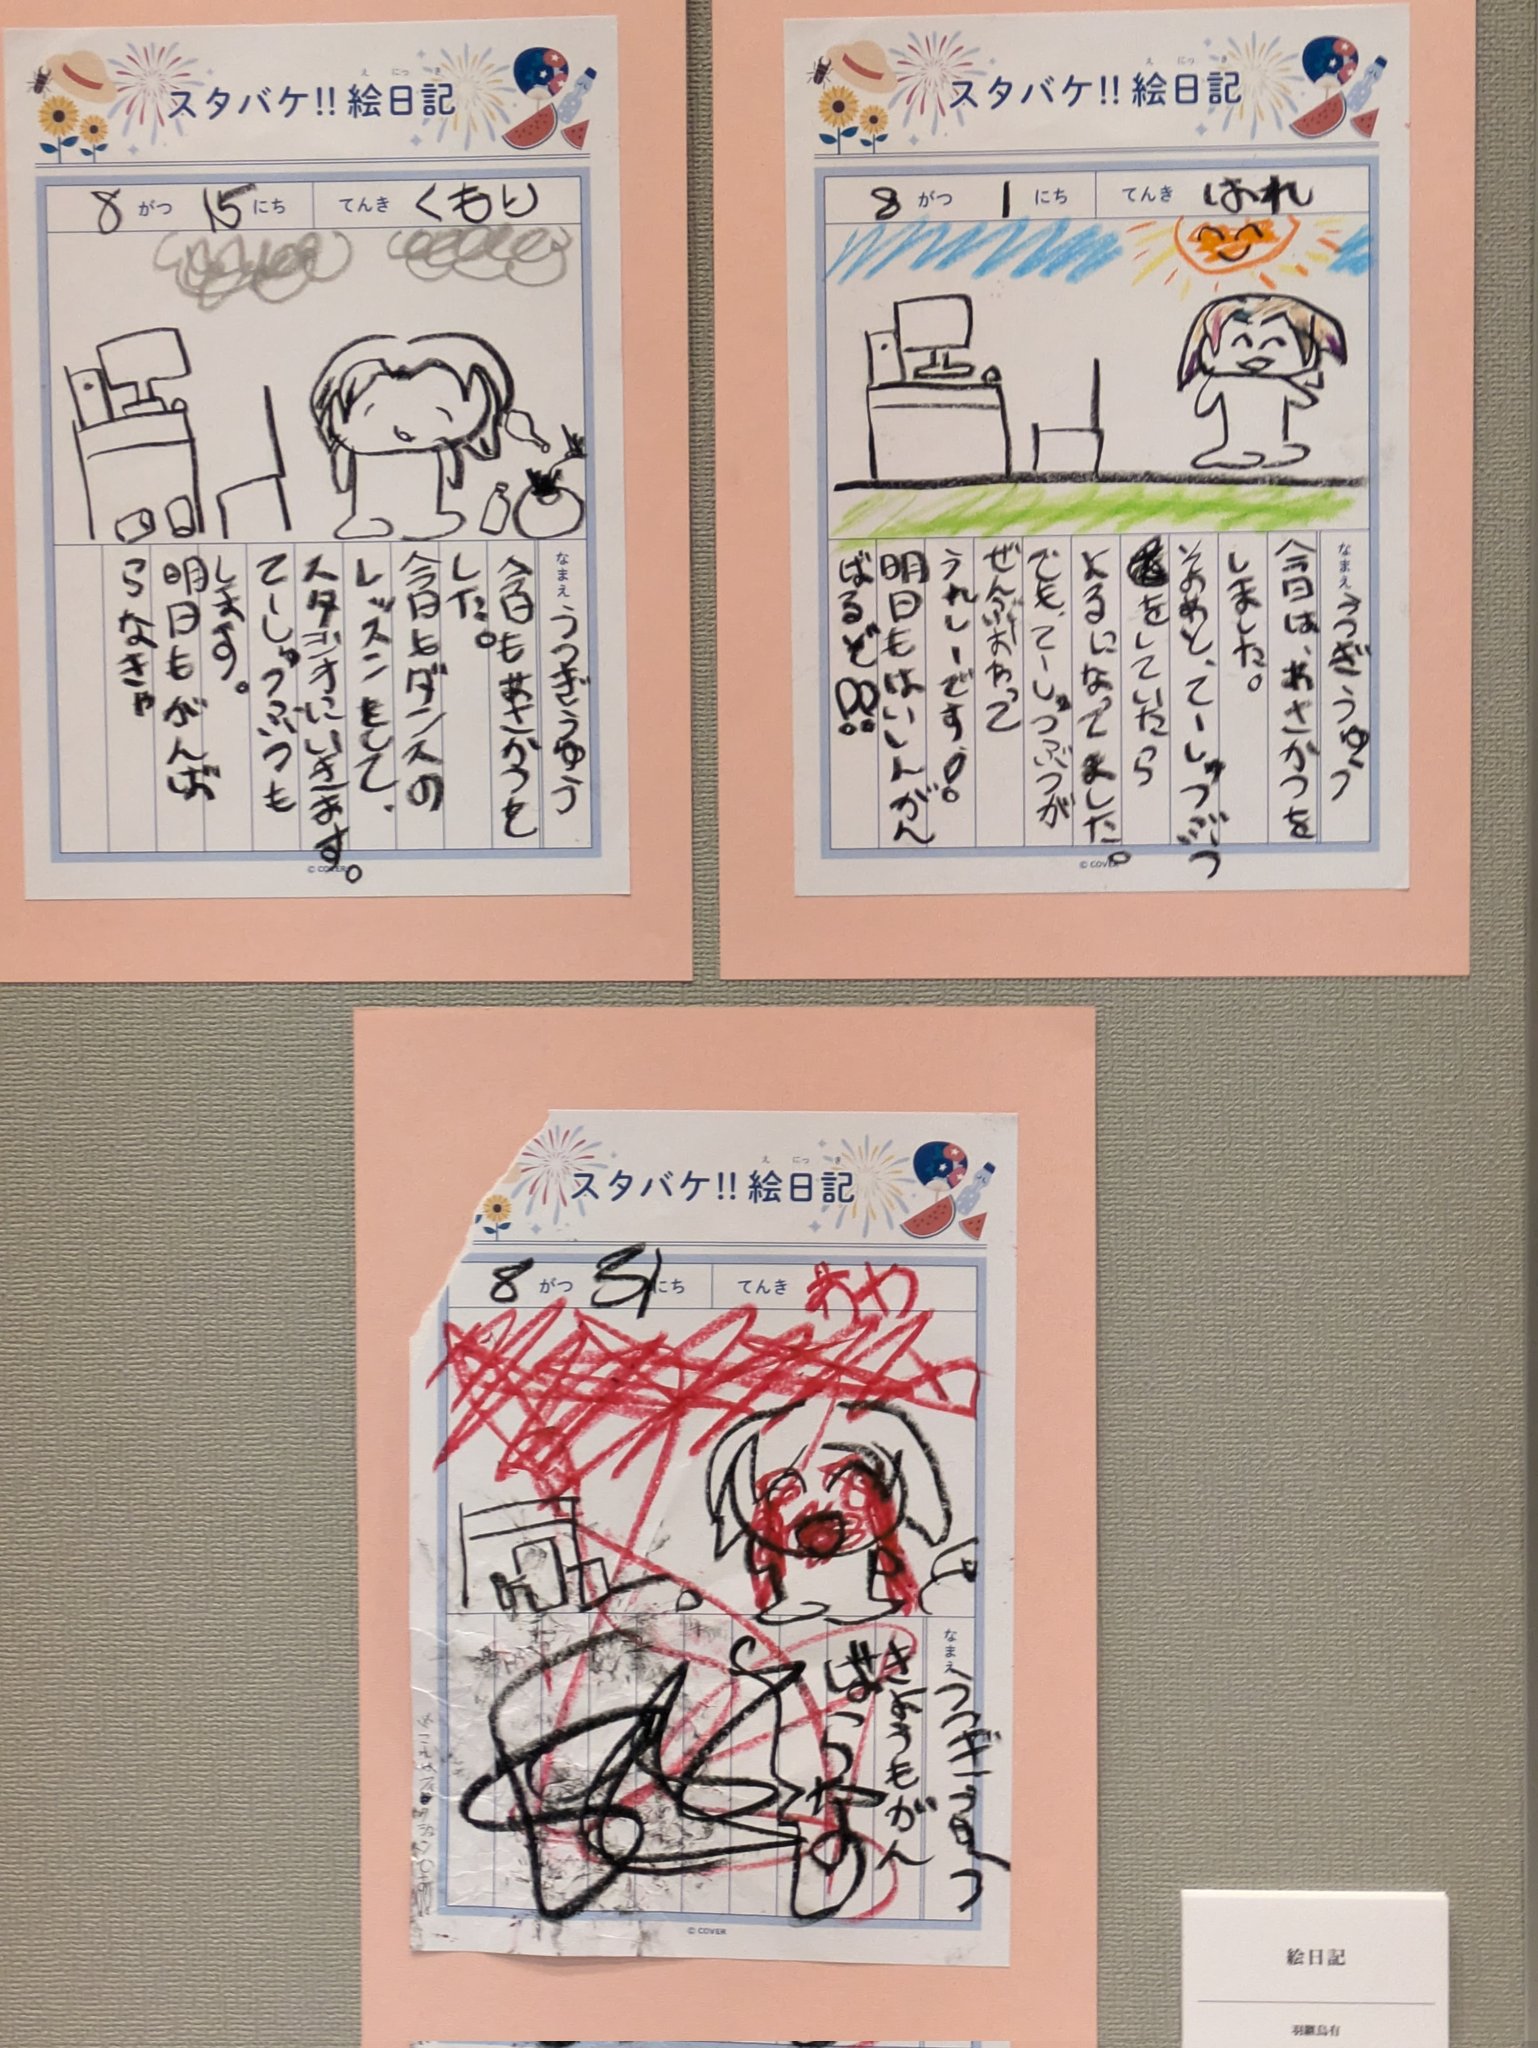 え にっ き
スタバケ!! 絵日記
8 がつ 15 にち てんき くもり
なまえ うつぎうゆう
今日もあさかつを
した。
今日もダンスの
レッスンもして、
スタジオにいきます。
てーしゅつぶつも
します。
明日もがんば
らなきゃ
© COVER
え にっ き
スタバケ!! 絵日記
8 がつ 1 にち てんき はれ
なまえ うつぎうゆう
今日は、あさかつを
しました。
そのあと、てーしゅつぶつ
をしていたら
よるになってました。
でも、てーしゅつぶつが
ぜんぶおわって
うれしーです!。
明日もはいしんがん
ばるぞ!!
© COVER
え にっ き
スタバケ!! 絵日記
8 がつ 31 にち てんき
なまえ うつぎうゆう
きょうもがん
ばらな
© COVER
絵日記
羽継烏有